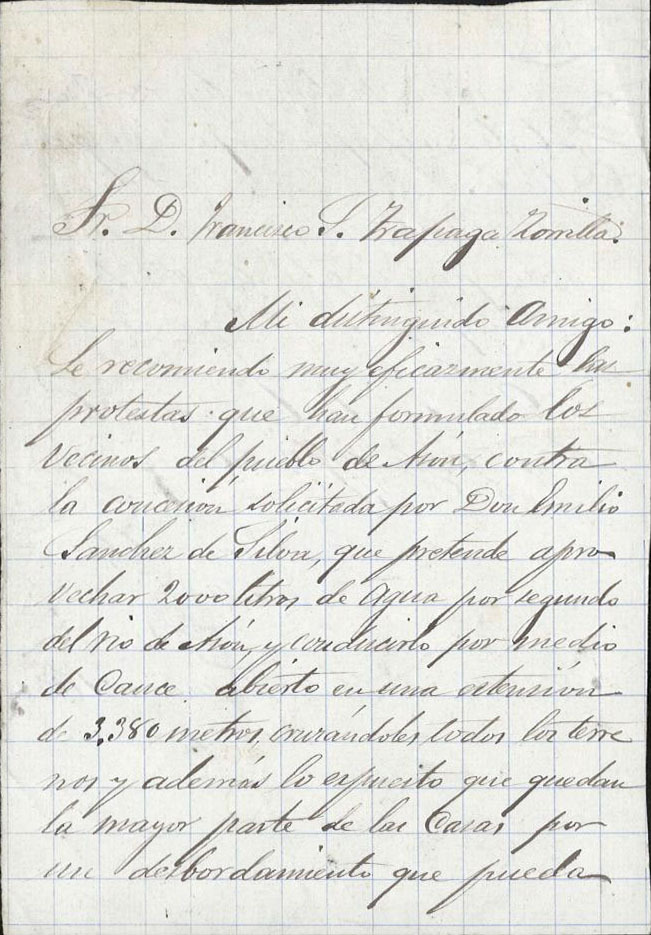 Sr. D. Francisco S. Trapaga Zorrilla.
Mi distinguido Amigo:
Le recomiendo muy eficazmente las
protestas que han formulado los
Vecinos del pueblo de Asón, contra
la concesión, solicitada por Don Emilio
Sanchez de Silva, que pretende apro
vechar 2000 litros de agua por segundo
del rio de Asón, y conducirlo por medio
de Cauce abierto en una extensión
de 3,380 metros, cruzándoles todos los terre
nos y además lo expuesto que quedan
la mayor parte de las Casas por
un desbordamiento que pueda